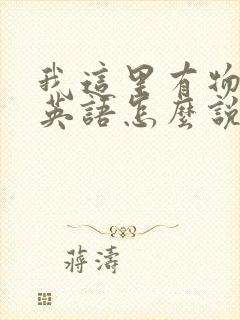 我這里有物
英語怎麼說
蔣濤